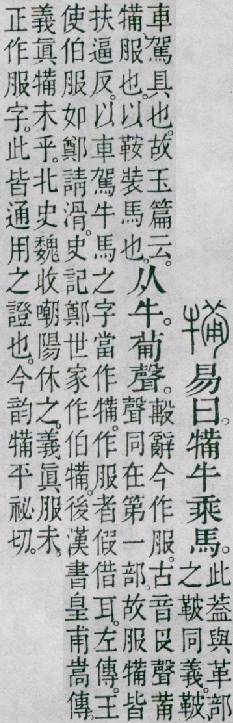 犕易曰。犕牛乘馬。此蓋與革部
之鞁同義。鞁
車駕具也。故玉篇云。
犕服也。以鞍裝馬也。
从牛。𤰇聲。
毄辭今作服。古音𠬝聲𤰇
聲同在第一部。故服犕皆
扶逼反。以車駕牛馬之字當作犕。作服者假借耳。左傳。王
使伯服如鄭請滑。史記鄭世家作伯犕。後漢書皇甫嵩傳。
義眞犕未乎。北史魏收嘲陽休之。義眞服未。
正作服字。此皆通用之證也。今韵犕平祕切。